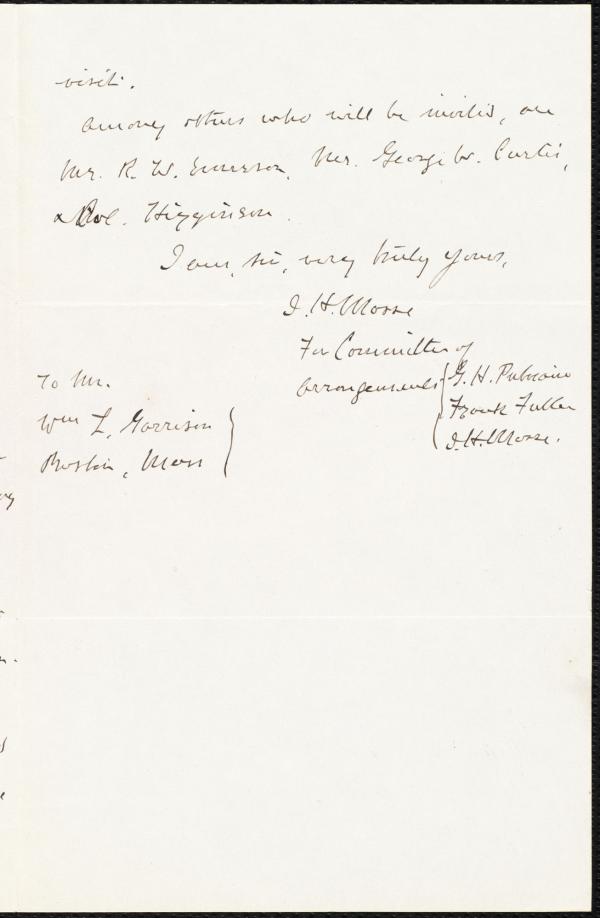 visit.
Among others who will be invited, are
Mr. R. W. Emerson, Mr. George W. Curtis,
& Col. Higginson.
I am, sir, very truly yours,
I. H. Morse
For Committee of
arrangements
G. H. Putnam
Frank Fuller
I. H. Morse.
To Mr.
Wm L. Garrison
Boston, Mass